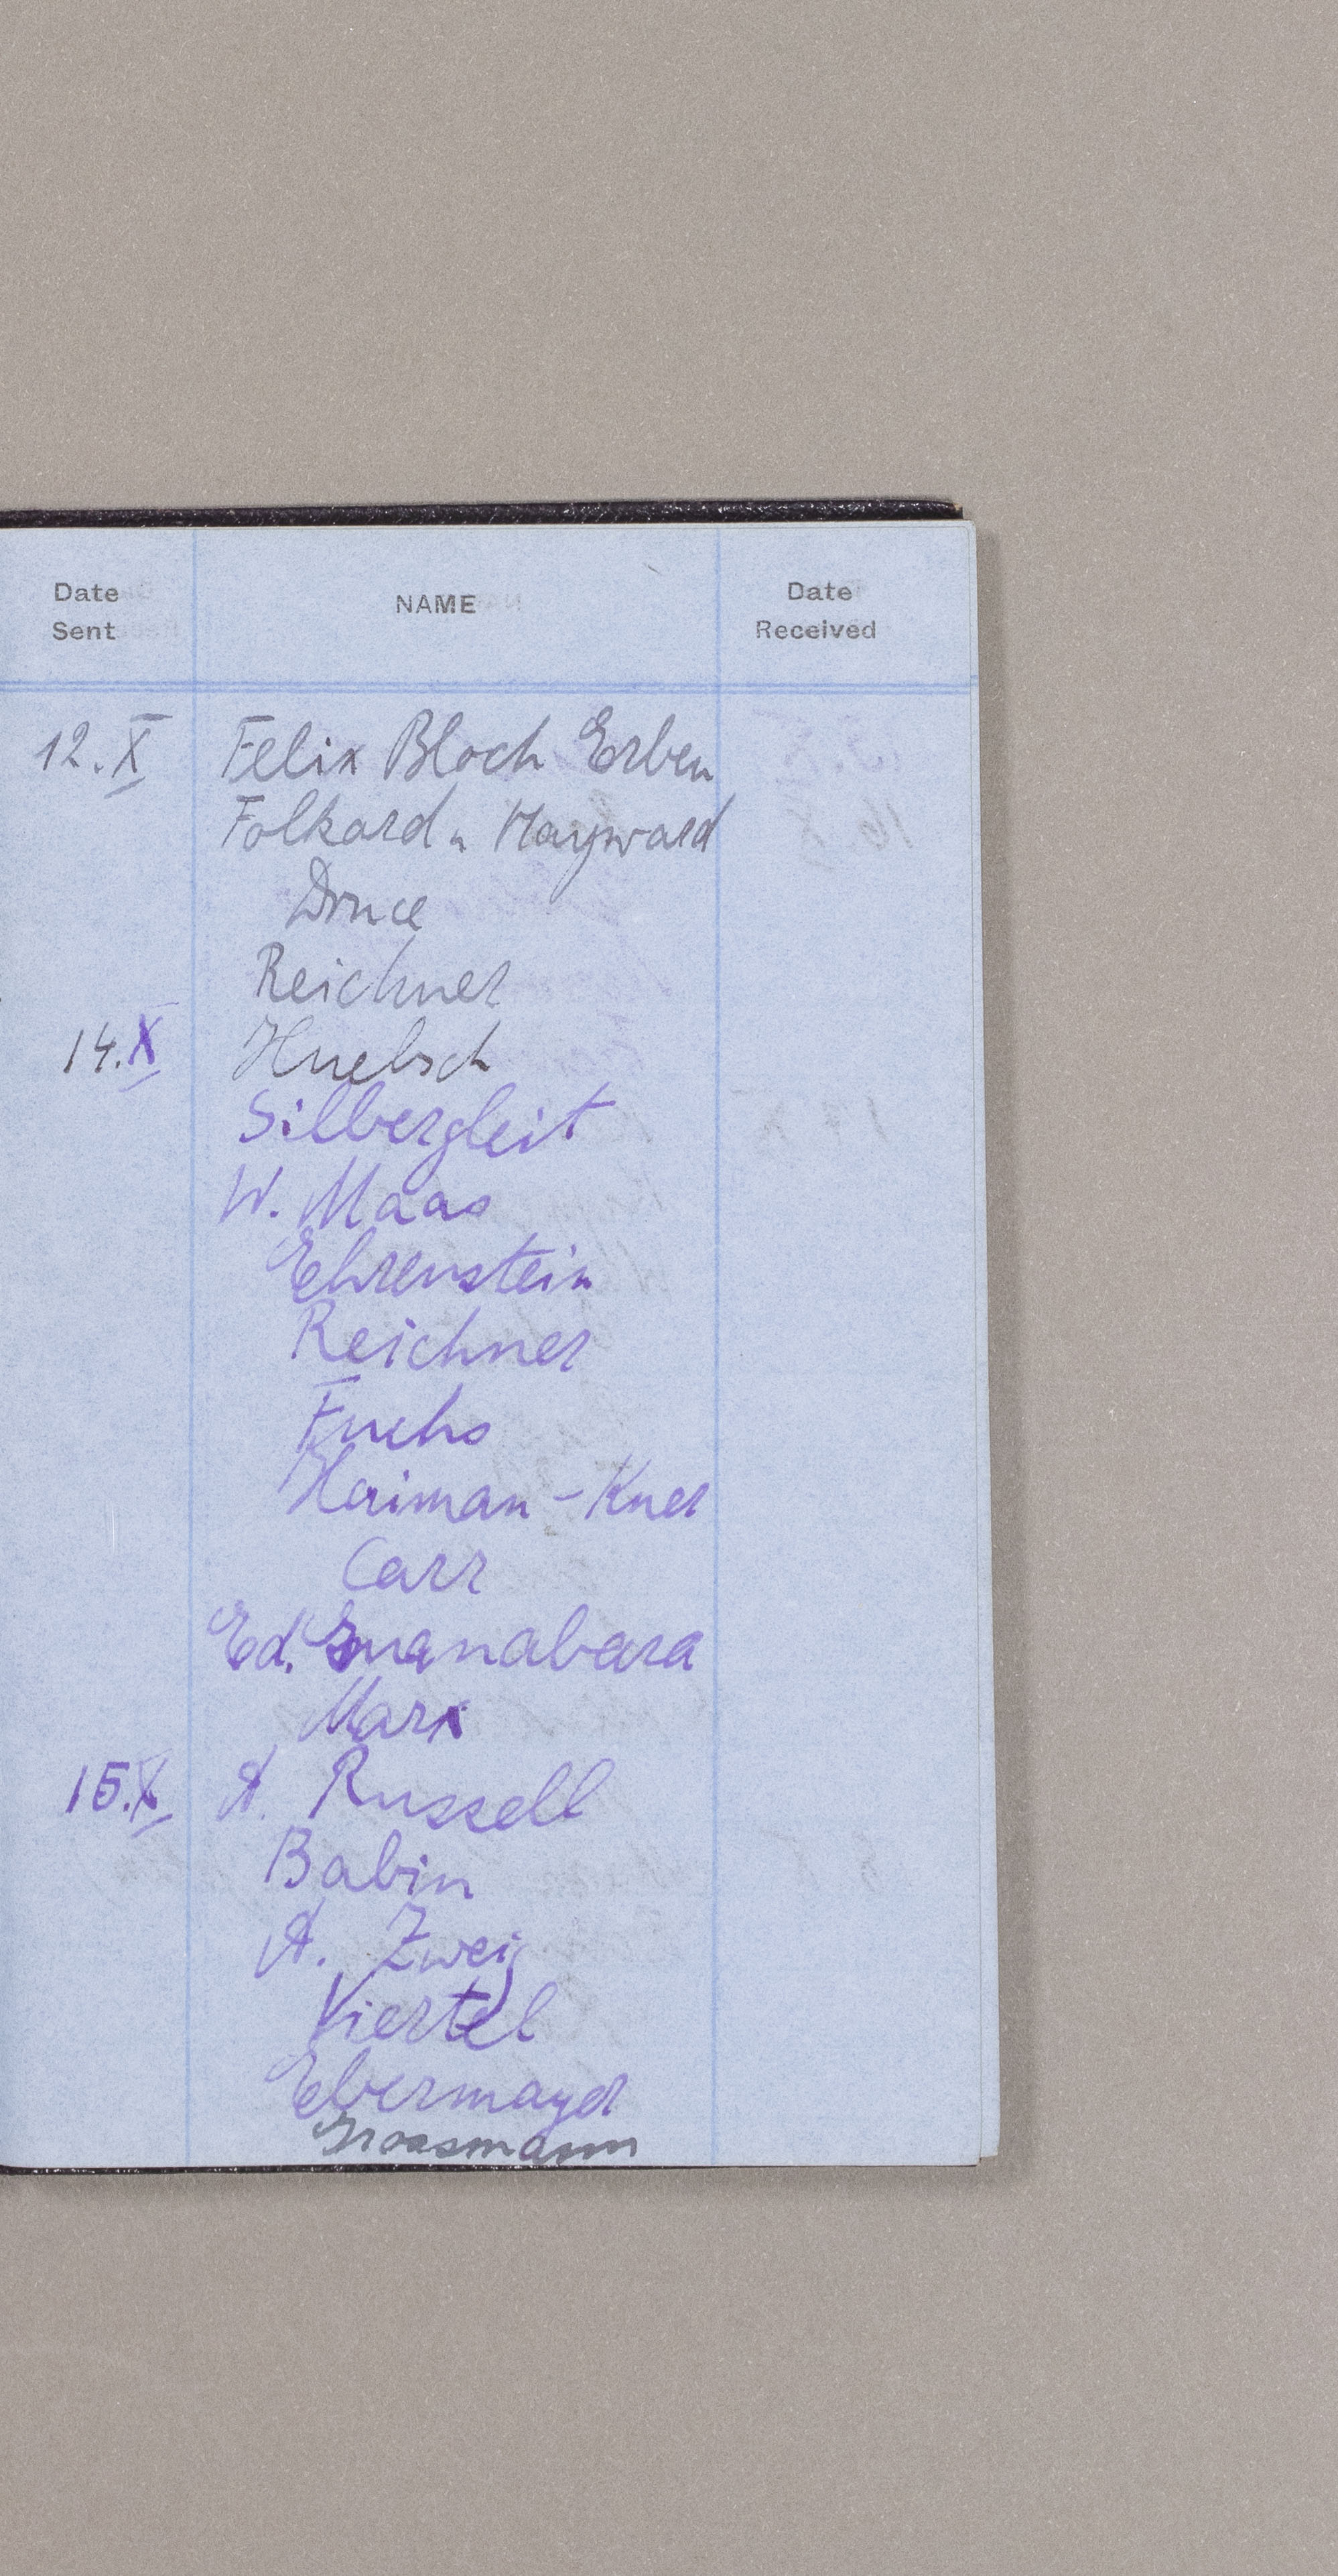 Date Sent NAME Date Received
12.X Felix Bloch Erben
Folkard u Hayward
Druce
Reichner
14.X Huebsch
Silbergleit
W. Maas
Ehrenstein
Reichner
Fuchs
Haiman - Kner
Carr
Ed. Guanabara
Marx
15.X A. Russell
Babin
A. Zweig
Viertel
Ebermayer
Grossmann